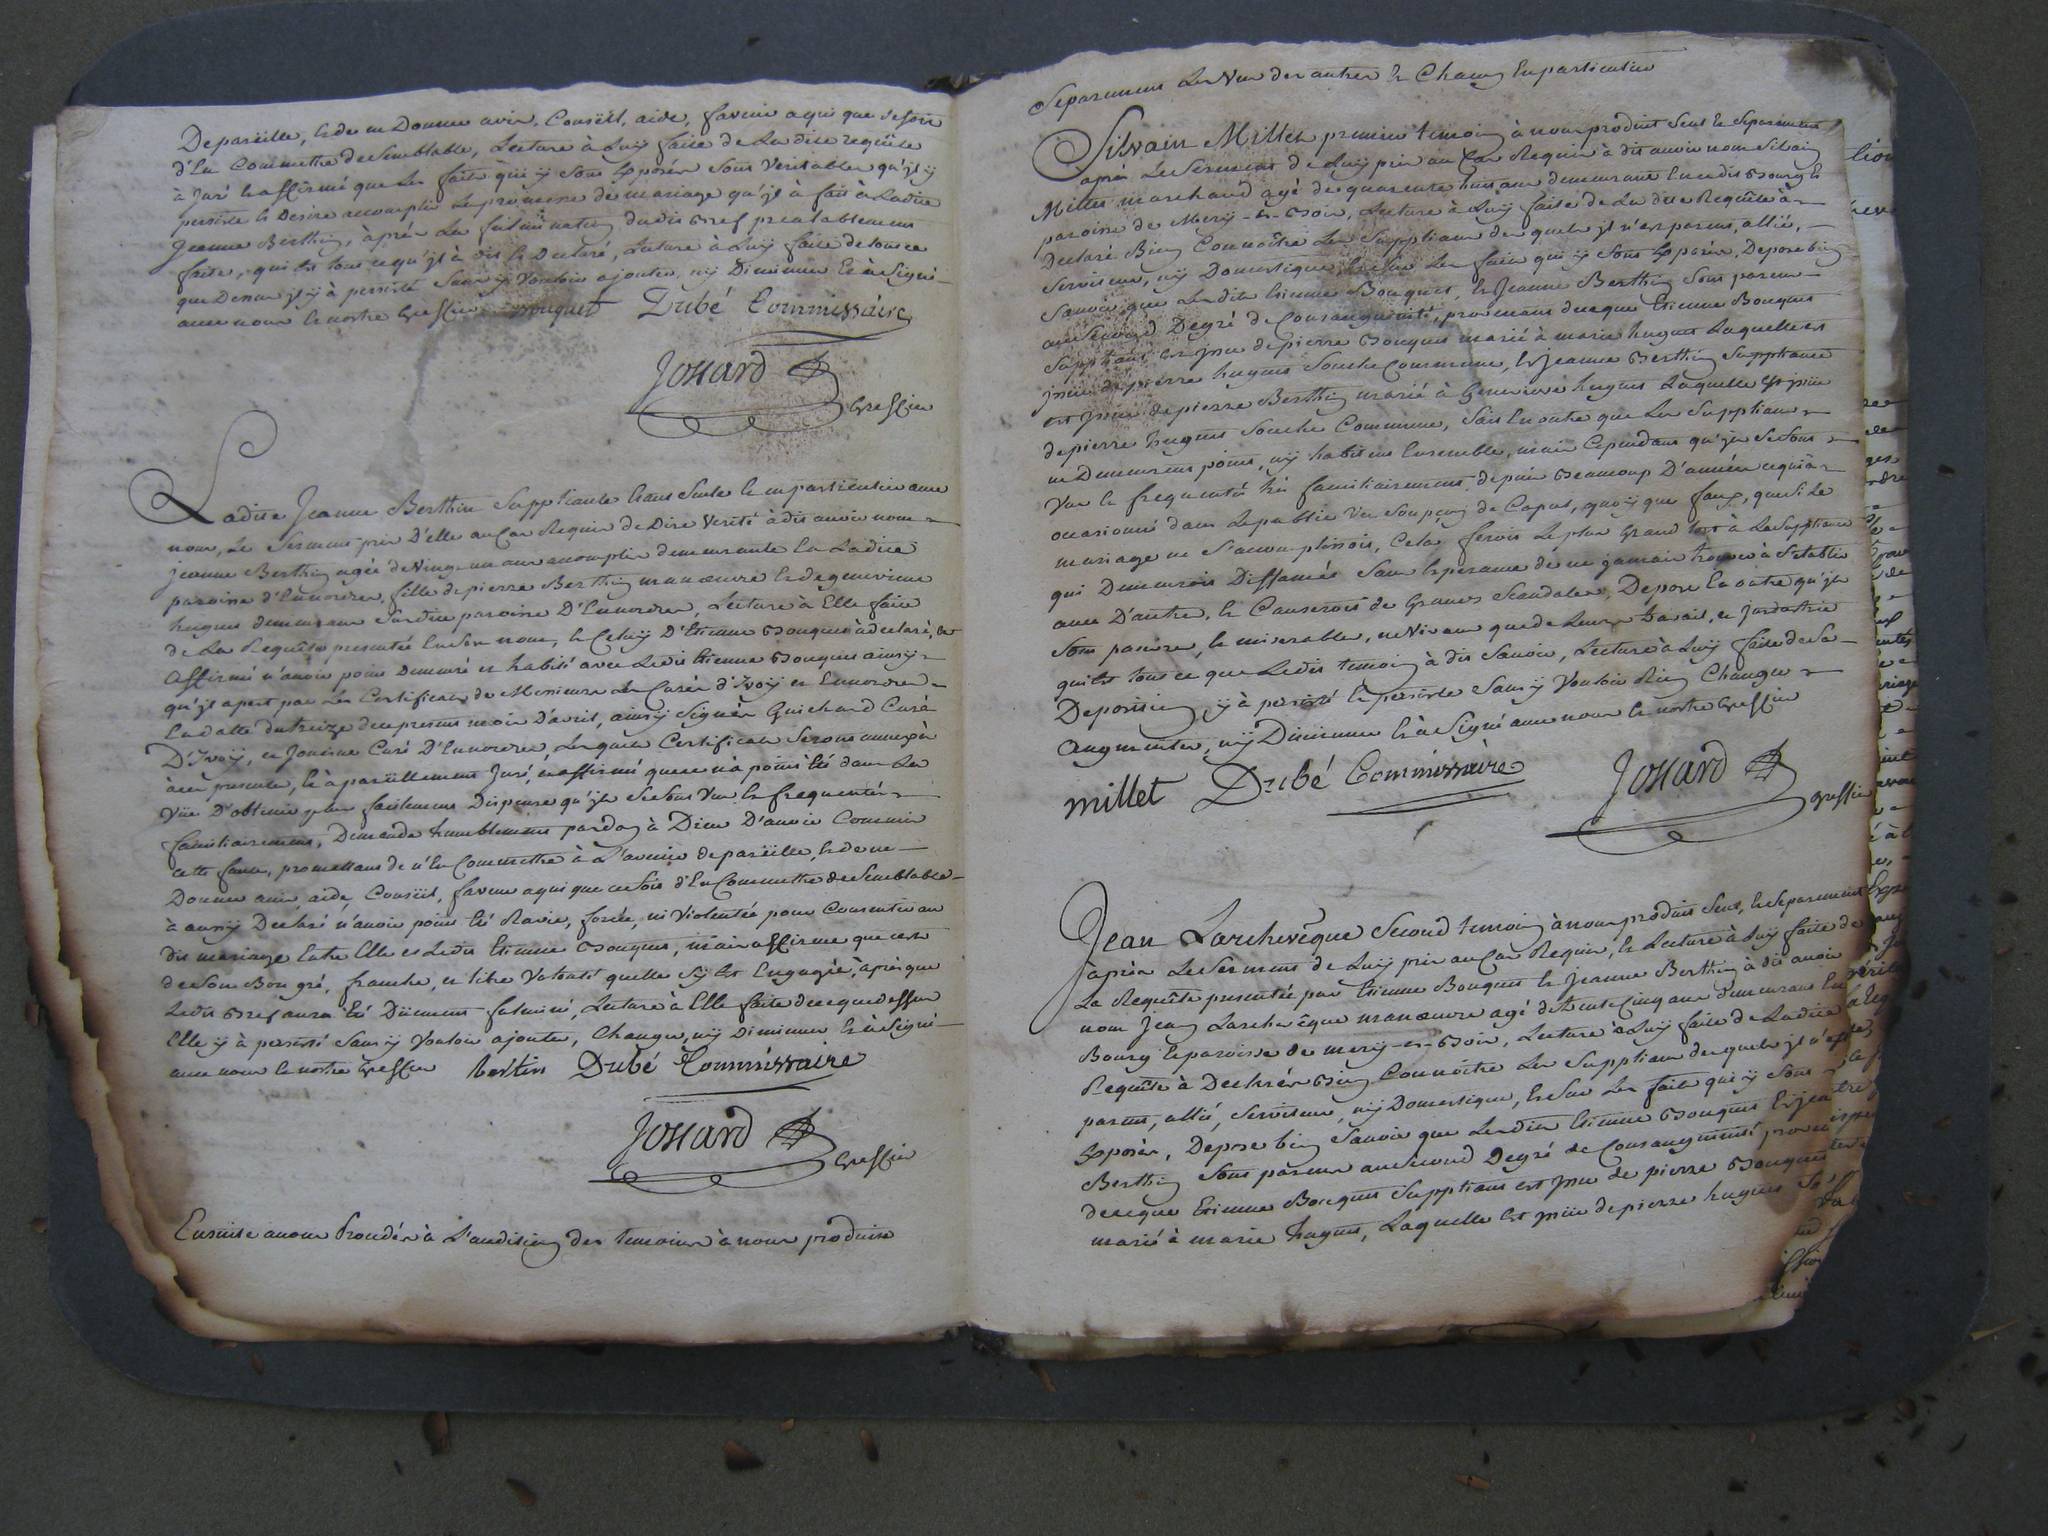 De pareille, et de ne Donner avis, Conseil, aide, faveur a qui que ce soit
d'En Commettre de Semblable, Lecture à Luy faite de La dite requête
à Juré et affirmé que Les faits qui y Sont Exposés Sont Veritables qu'jl y
persiste et Desire accomplir La promesse de mariage qu'jl à fait à Ladite
Jeanne Berthin, àprés La fulmination dudit Bref prealablement
faite, qui Est tout ce qu'jl à dit et Declaré, Lecture à Luy faite de tout ce
que Dessus jl y à persisté Sans y Vouloir ajouter, ny Diminuer et à Signé
avec nous et nostre Greffier Bouquet Dubé Commissaire
Jossard
Greffier
Ladite Jeanne Berthin Suppliante Etant Seule et en particulier avec
nous, Le Serment pris D'elle au Cas Requis de Dire Verité à dit avoir nom
Jeanne Berthin agée de Vingt un ans accomplis demeurante En Ladite
paroisse d'Ennordres, fille de pierre Berthin manœuvre et de genevieve
hugues demeurans Susdite paroisse D'Ennordres, Lecture à Elle faite
de La Requête presenté En Son nom, et Celuy D'Etienne Bouquet à declaré, et
Affirmé n'avoir point Demeuré et habité avec Ledit Etienne Bouquet ainsy
qu'jl apert par Les Certificats de Messieurs Les Curés d'Yvoy et Ennordres
En datte du treize du present mois D'avril, ainsy Signés Guichard Curé
D'Yvoy, et Curé D'Ennordres, Lesquels Certificats Seront annexés
à ces presente, Et à pareillement Juré, et affirmé que ce n'à point Eté dans La
Vüe D'obtenir plus facilement Dispense qu'jls Se Sont Vus et frequentés
familiairement, Demande humblement pardon à Dieu D'avoir Commis
cette faute, promettant de n'En Commettre à L'avenir de pareille, et de ne
Donner avis, aide, Conseil, faveur a qui que ce soit d'En Commettre de Semblable
à aussy Declaré n'avoir point Eté Ravie, forcée, ni Violentée pour Consentir au
dit mariage Entre Elle et Ledit Etienne Bouquet, mais affirme que c'est
de Son Bon gré, franche, et libre Volonté quelle s'y Est Engagée, àprés que
Ledit Bref aura Eté Düement fulminé, Lecture à Elle faite de ce que dessus
Elle y à persisté Sans y Vouloir ajouter, Changer, ny Diminuer Et à Signé
avec nous et nostre Greffier bertin Dubé Commissaire
Jossard
Greffier
Ensuite avons Procédés à L'audition des temoins à nous produits
Separement Les Uns des autres et Chacun En particulier
Silvain Millet premier temoin à nous produit Seul et Separement
après Le Serment de Luy pris au Cas Requis à dit avoir nom Silvain
Millet marchand agé de quarente huit ans demeurant En cedit Bourg et
paroisse de Mery-es-Bois, Lecture à Luy faite de La dite Requête à
Declaré Bien Connoître Les Supplians desquels jl n'est parent, allié,
Serviteur, ny Domestique, Et Sur Les faits qui y Sont Exposés, Depose bien
Savoir que Lesdits Etienne Bouquet, et Jeanne Berthin Sont parens
au Second Degré de Consanguinité, provenans de ce que Etienne Bouquet
Suppliant est jssu de pierre Bouquet marié à marie hugues Laquelle est
jssüe de pierre hugues Souche Commune, Et Jeanne Berthin Suppliante
est jssue de pierre Berthin marié à Genevieve hugues Laquelle Est jssüe
de pierre hugues Souche Commune, Sait En outre que Les Supplians
ne Demeurent point, ny habitent Ensemble, mais Cependant qu'jls Se Sont
Vus et frequentés très familiairement depuis Beaucoup D'années ce qui à
occasionné dans Le public Un Soupçon de Copul, quoy que faux, que Si Le
mariage ne S'accomplissoit, Cela feroit Le plus Grand tort à La Suppliante
qui Demeureroit Diffamée Sans Esperance de ne jamais trouver à S'etablir
avec D'autre, et Causeroit de Grands Scandales, Depose En outre qu'jls
Sont pauvres, et miserables, ne Vivans que de Leurs travail, et jndustrie
qui Est tout ce que Ledit temoin à dit Savoir, Lecture à Luy faite de Sa
Deposition, y à persisté Et persiste Sans y Vouloir Rien Changer
Augmenter, ny Diminuer Et à Signé avec nous et nostre Greffier
millet Dubé Commissaire Jossard
Greffier
Jean Larchevêque Second temoin à nous produit Seul, et Separement
àprés Le Serment de Luy pris au Cas Requis, et Lecture à Luy faite de
La Requête presentée par Etienne Bouquet et Jeanne Berthin à dit avoir
nom Jean Larchevêque manœuvre agé de trente Cinq ans demeurant En
Bourg et paroisse de mery-es-Bois, Lecture à Luy faite de Ladite
Requête à Declarés Bien Connoître Les Supplians desquels jl n'est
parent, allié, Serviteur, ny Domestique, Et Sur Les faits qui y Sont
Exposés, Depose bien Savoir que Lesdits Etienne Bouquet Et Jeanne
Berthin Sont parens au Second Degré de Consanguinité provenans
de ce que Etienne Bouquet Suppliant est jssu de pierre Bouquet
marié à marie hugues, Laquelle Est jssüe de pierre hugues